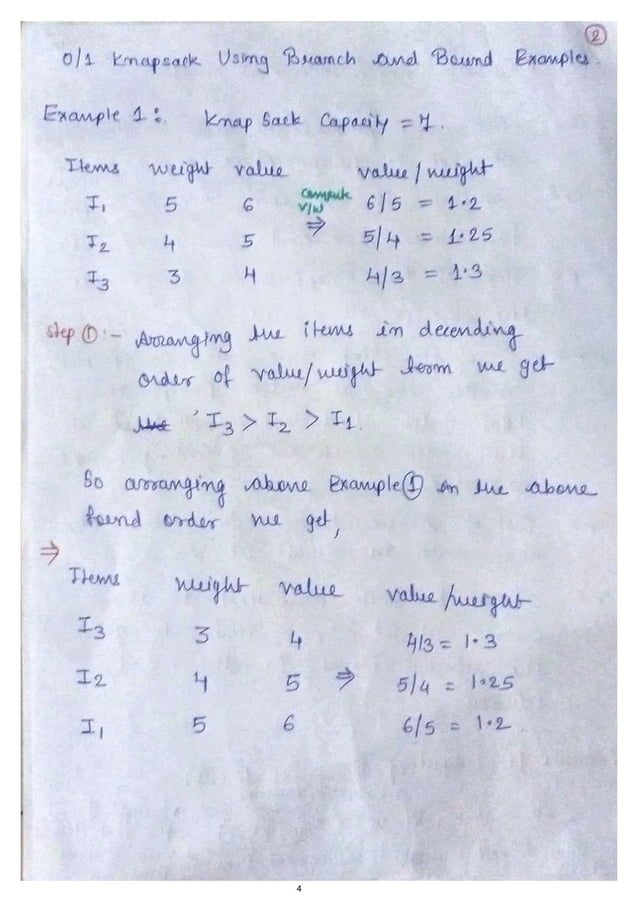 2
0/1 Knapsack Using Branch and Bound Examples.
Example 1:. Knap Sack Capacity = 7.
Items weight value value / weight
I1 5 6 Compute V/W ⇒ 6/5 = 1.2
I2 4 5 5/4 = 1.25
I3 3 4 4/3 = 1.3
Step ① :- Arranging the items in decending
order of value/weight term we get
I3 > I2 > I1.
So arranging above Example ① in the above
found order we get,
⇒
Items weight value value /weight
I3 3 4 4/3 = 1.3
I2 4 5 ⇒ 5/4 = 1.25
I1 5 6 6/5 = 1.2.
4